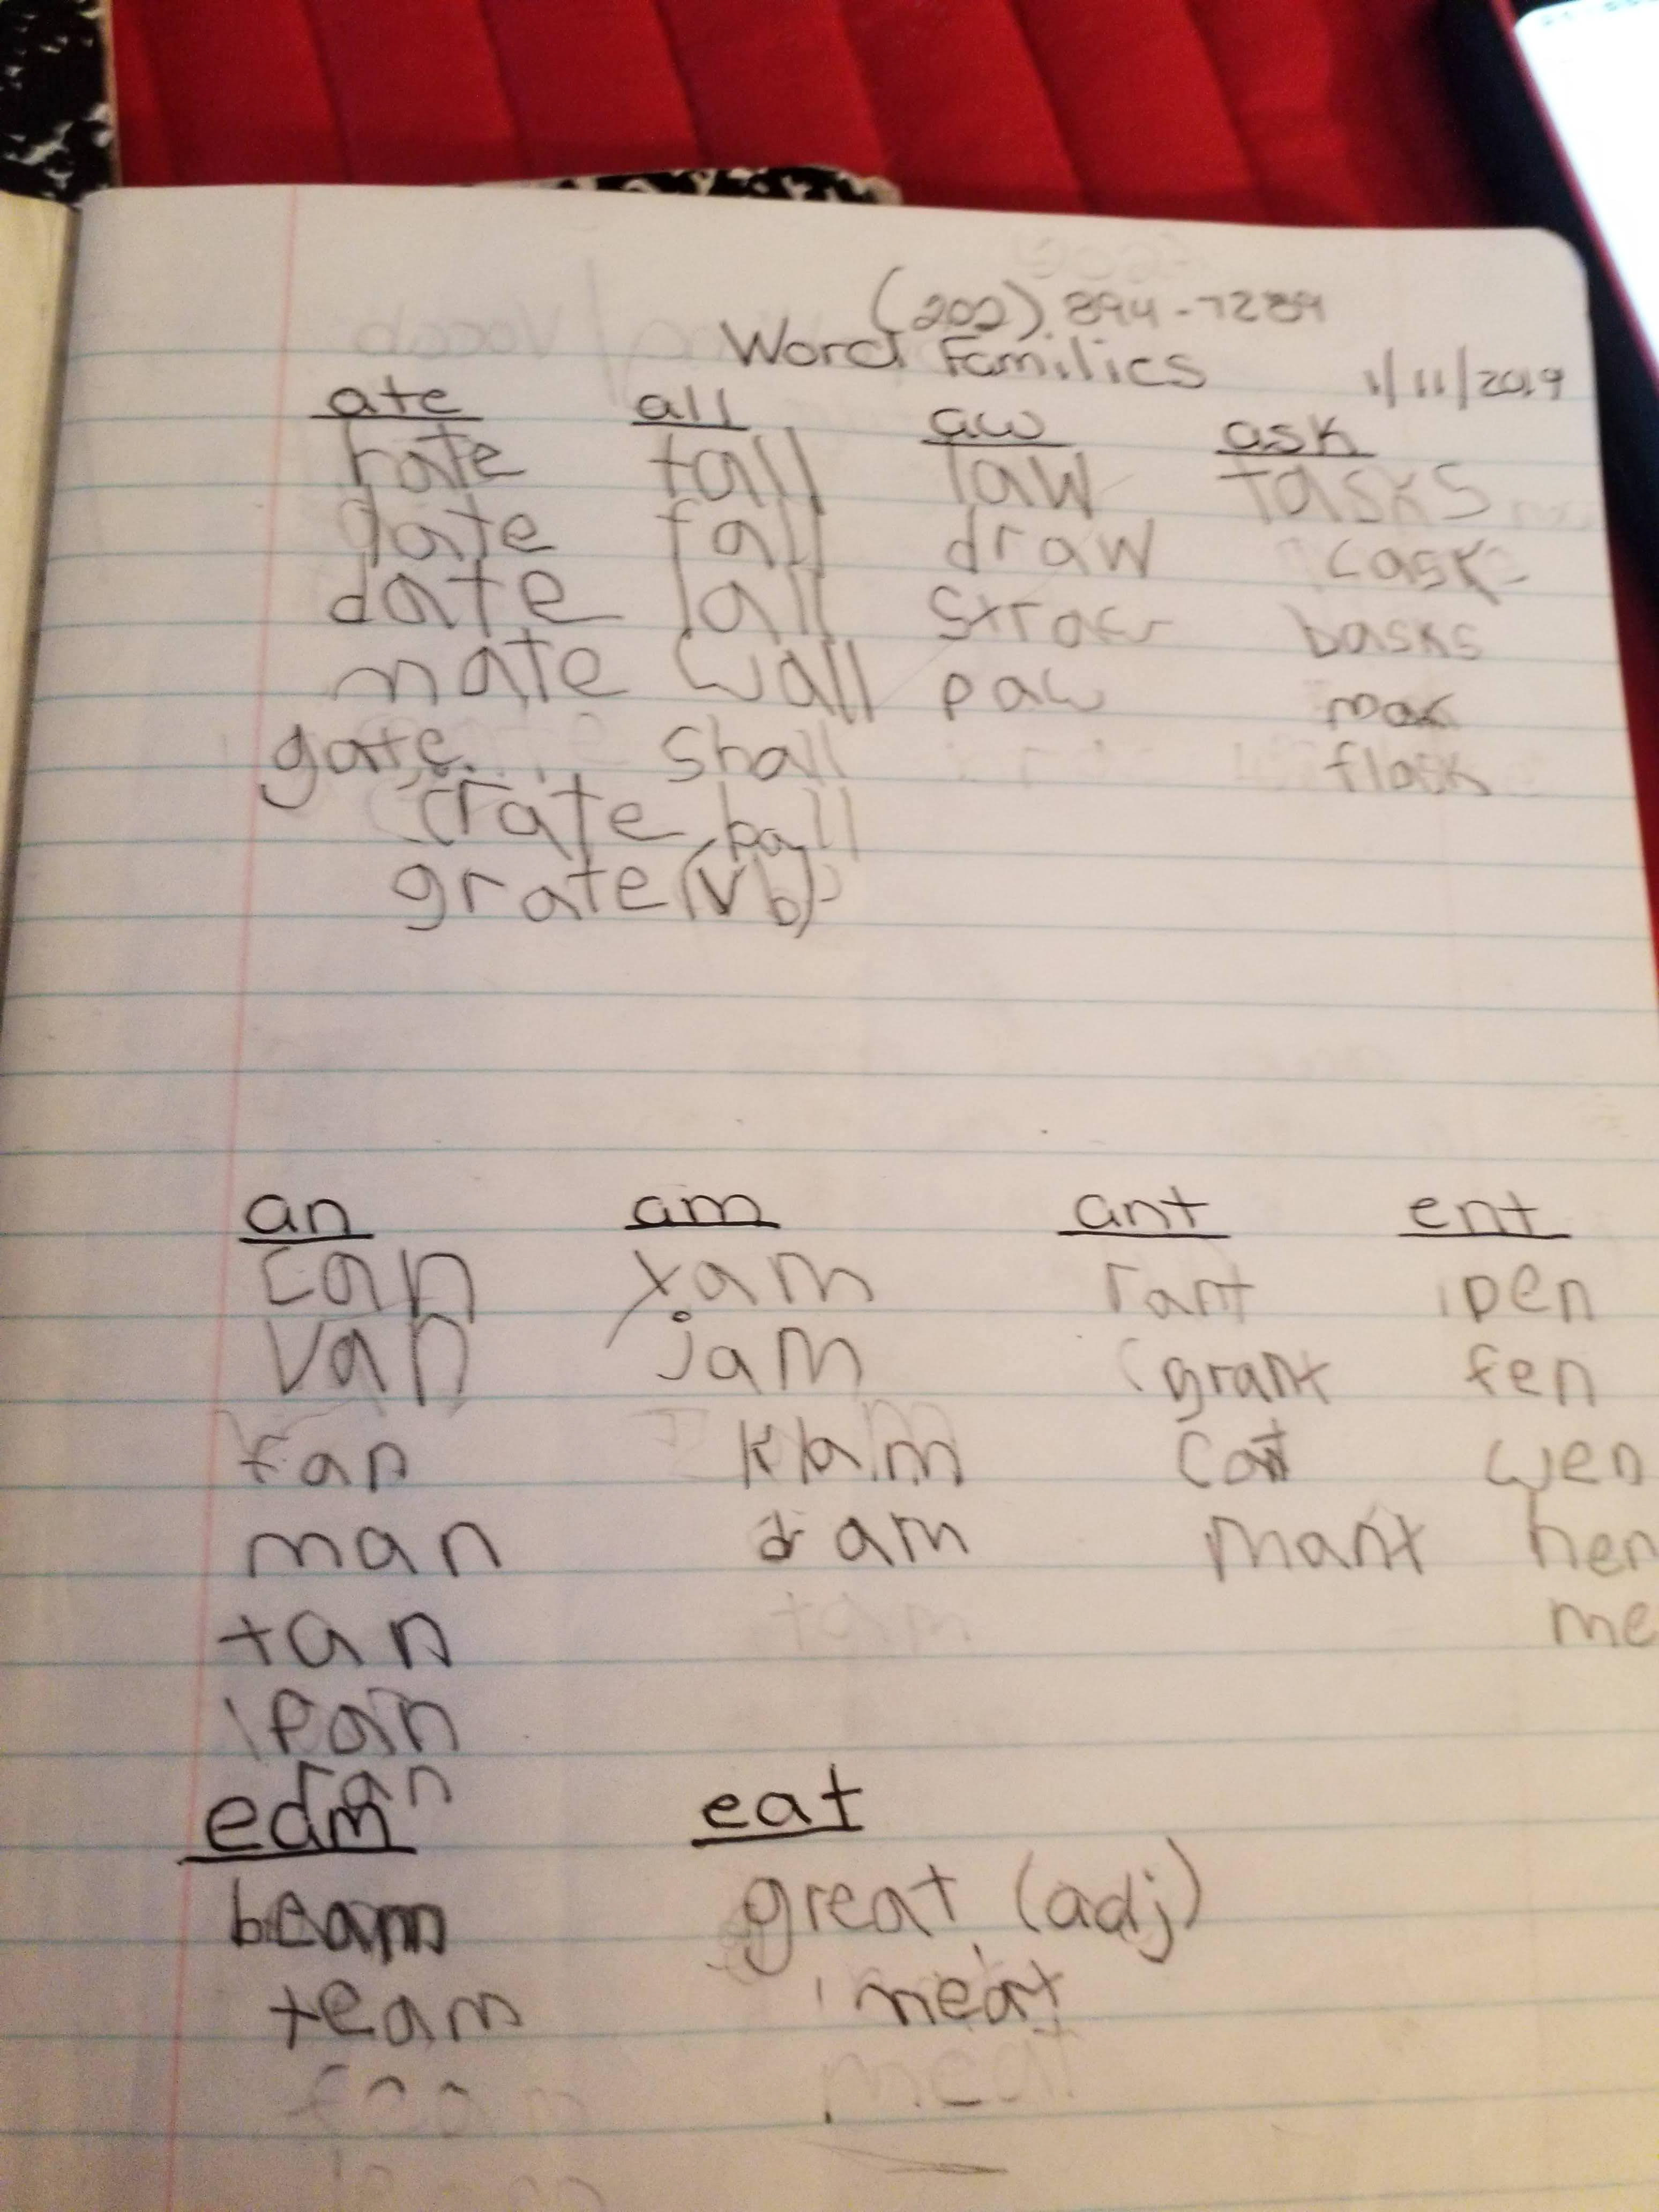 (202) 894-7289
Word Families 1/11/2019
ate all aw ask
rate tall law tasks
date fall draw cask
date lall
mate wall paw basks
gate shall flask
crate ball
grate (vb)
an am ant ent
can yam rant pen
van jam grant fen
fan wen
man dam mant hen
tan me
pan
ran
eam eat
beam great (adj)
team meat
meat